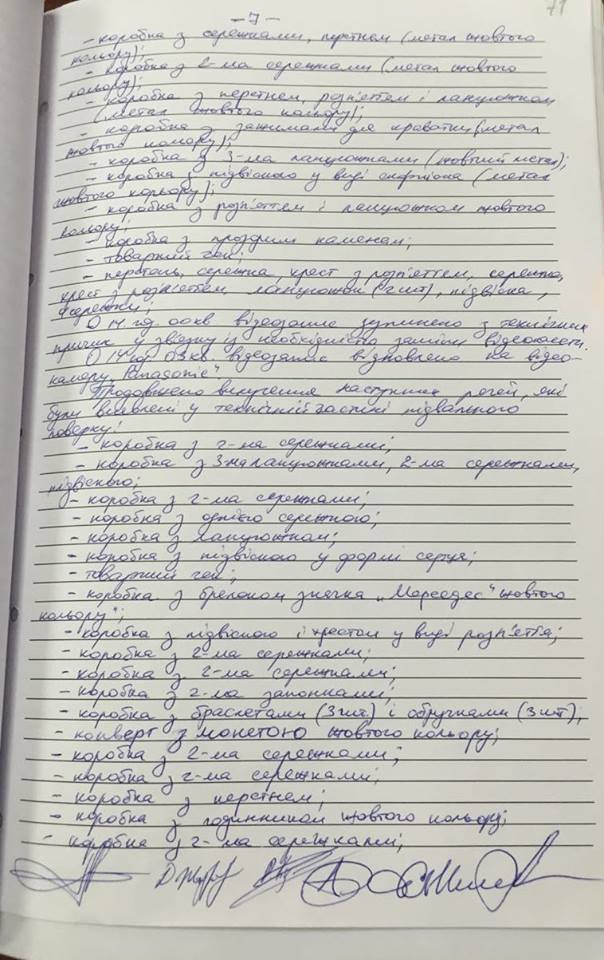 - 7 -
71
- коробка з сережками, перстнем (метал жовтого
кольору);
- коробка з 2-ма сережками (метал жовтого
кольору);
- коробка з перстнем, розп'яттям і ланцюжком
(метал жовтого кольору);
- коробка з зажимами для краватки (метал
жовтого кольору);
- коробка з 3-ма ланцюжками (жовтий метал);
- коробка з підвіскою у виді скорпіона (метал
жовтого кольору);
- коробка з розп'яттям і ланцюжком жовтого
кольору;
- коробка з прозорим каменем;
- товарний чек;
- перстень, сережка, крест з розп'яттем, сережка,
крест з розп'яттем, ланцюжок (2 шт), підвіска,
сережки;
О 14 год. 00 хв. відеозапис зупинено з технічних
причин у звязку із необхідністю заміни
О 14 год 03 хв. відеозапис відновлено на відео-
камеру "Panasonic"
Продовжено вилучення наступних речей, які
були виявлені у технічній частині підвального
поверху:
- коробка з 2-ма сережками;
- коробка з 3-ма ланцюжками, 2-ма сережками,
підвіскою;
- коробка з 2-ма сережками;
- коробка з однією сережкою;
- коробка з ланцюжком;
- коробка з підвіскою у формі серця;
- товарний чек;
- коробка з брелоком значка „Мерседес" жовтого
кольору";
- коробка з підвіскою і хрестом у виді розп'яття;
- коробка з 2-ма сережками;
- коробка з 2-ма сережками;
- коробка з 2-ма запонками;
- коробка з браслетами (3 шт) і обручками (3 шт);
- конверт з монетою жовтого кольору;
- коробка з 2-ма сережками;
- коробка з 2-ма сережками;
- коробка з перстнем;
- коробка з годинником жовтого кольору;
- коробка з 2-ма сережками;